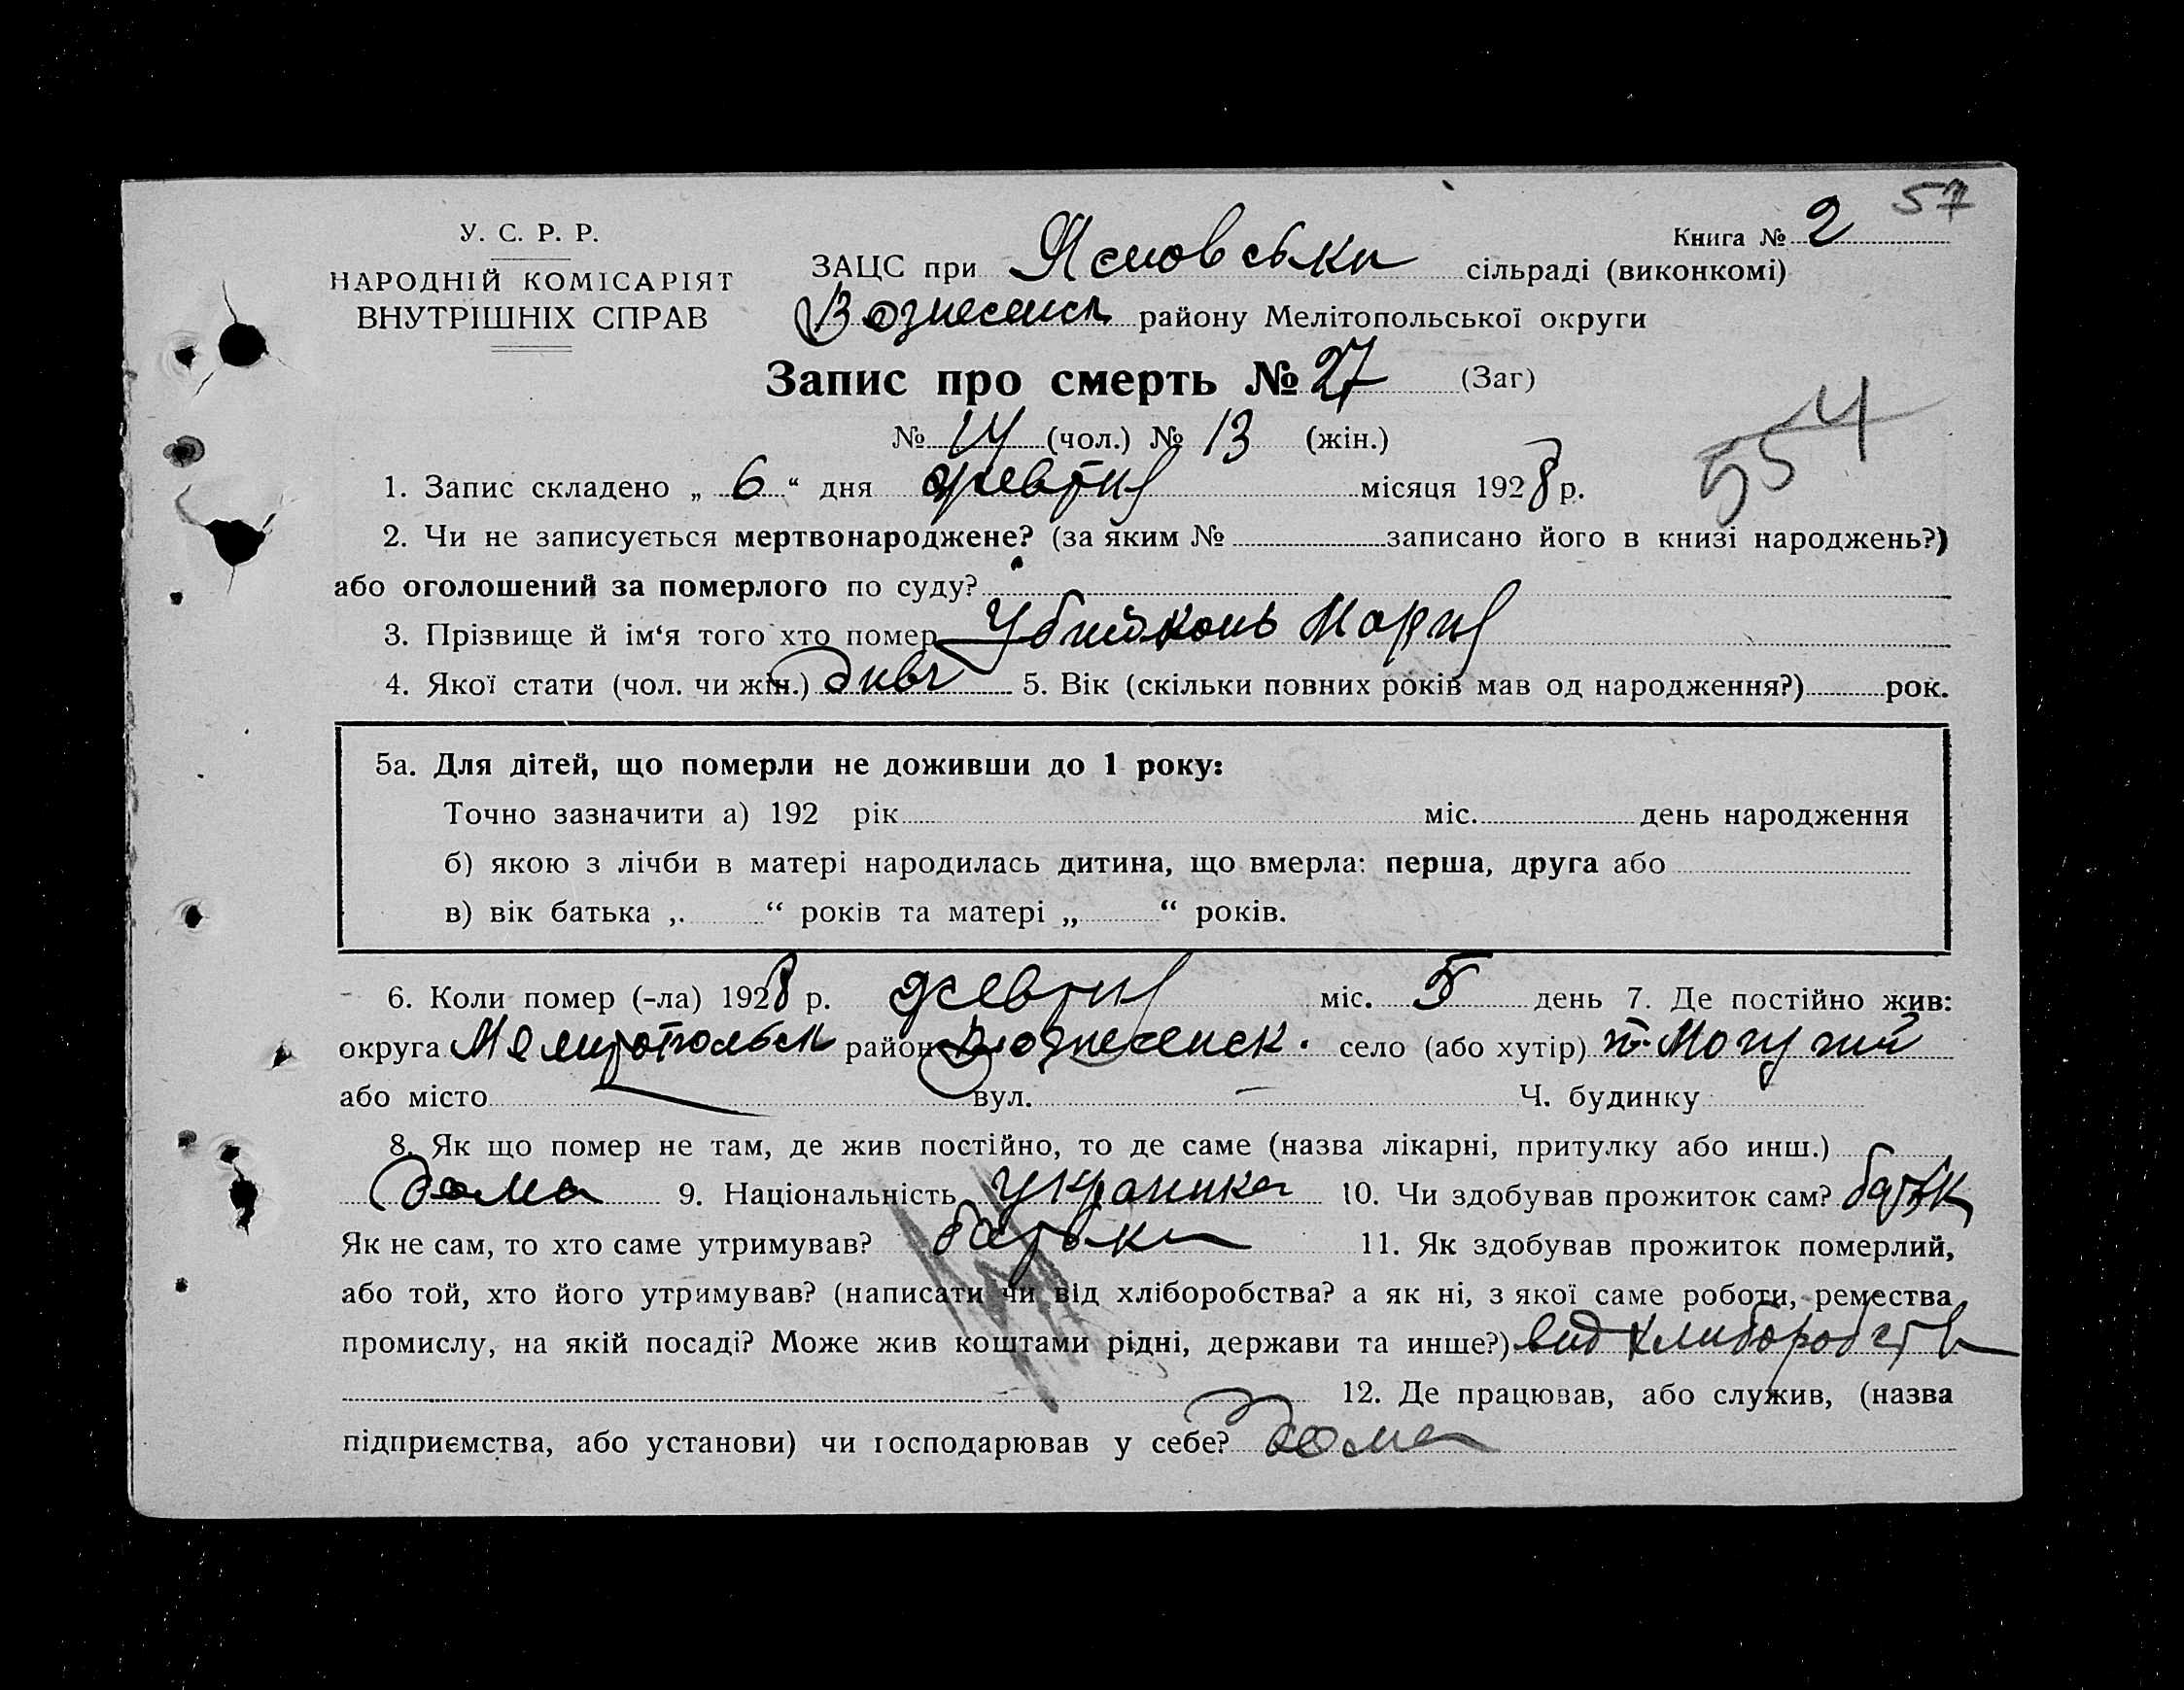 57
У. С. Р. Р.
НАРОДНІЙ КОМІСАРІЯТ
ВНУТРІШНІХ СПРАВ
Книга № 2
ЗАЦС при Ясновськи сільраді (виконкомі)
Вознесенск району Мелітопольської округи
Запис про смерть № 27 (Заг)
№ 14 (чол.) № 13 (жін.)
554
1. Запис складено „ 6 “ дня жевтня місяця 1928 р.
2. Чи не записується мертвонароджене? (за яким № записано його в книзі народжень?)
або оголошений за померлого по суду?
3. Прізвище й ім‘я того хто помер Убийконь Мария
4. Якої стати (чол. чи жін.) дивч 5. Вік (скільки повних років мав од народження?) рок.
5а. Для дітей, що померли не доживши до 1 року:
Точно зазначити а) 192 рік міс. день народження
б) якою з лічби в матері народилась дитина, що вмерла: перша, друга або
в) вік батька „ “ років та матері „ “ років.
6. Коли помер (-ла) 1928 р. жевтня міс. 5 день 7. Де постійно жив:
округа Мелитопольск район Вознесенск. село (або хутір) п. Могучий
або місто вул. Ч. будинку
8. Як що помер не там, де жив постійно, то де саме (назва лікарні, притулку або инш.)
дома 9. Національність украинка 10. Чи здобував прожиток сам? батьк
Як не сам, то хто саме утримував? батьки 11. Як здобував прожиток померлий,
або той, хто його утримував? (написати чи від хліборобства? а як ні, з якої саме роботи, ремества
промислу, на якій посаді? Може жив коштами рідні, держави та инше?) вид хлиборобств
12. Де працював, або служив, (назва
підприємства, або установи) чи господарював у себе? дома